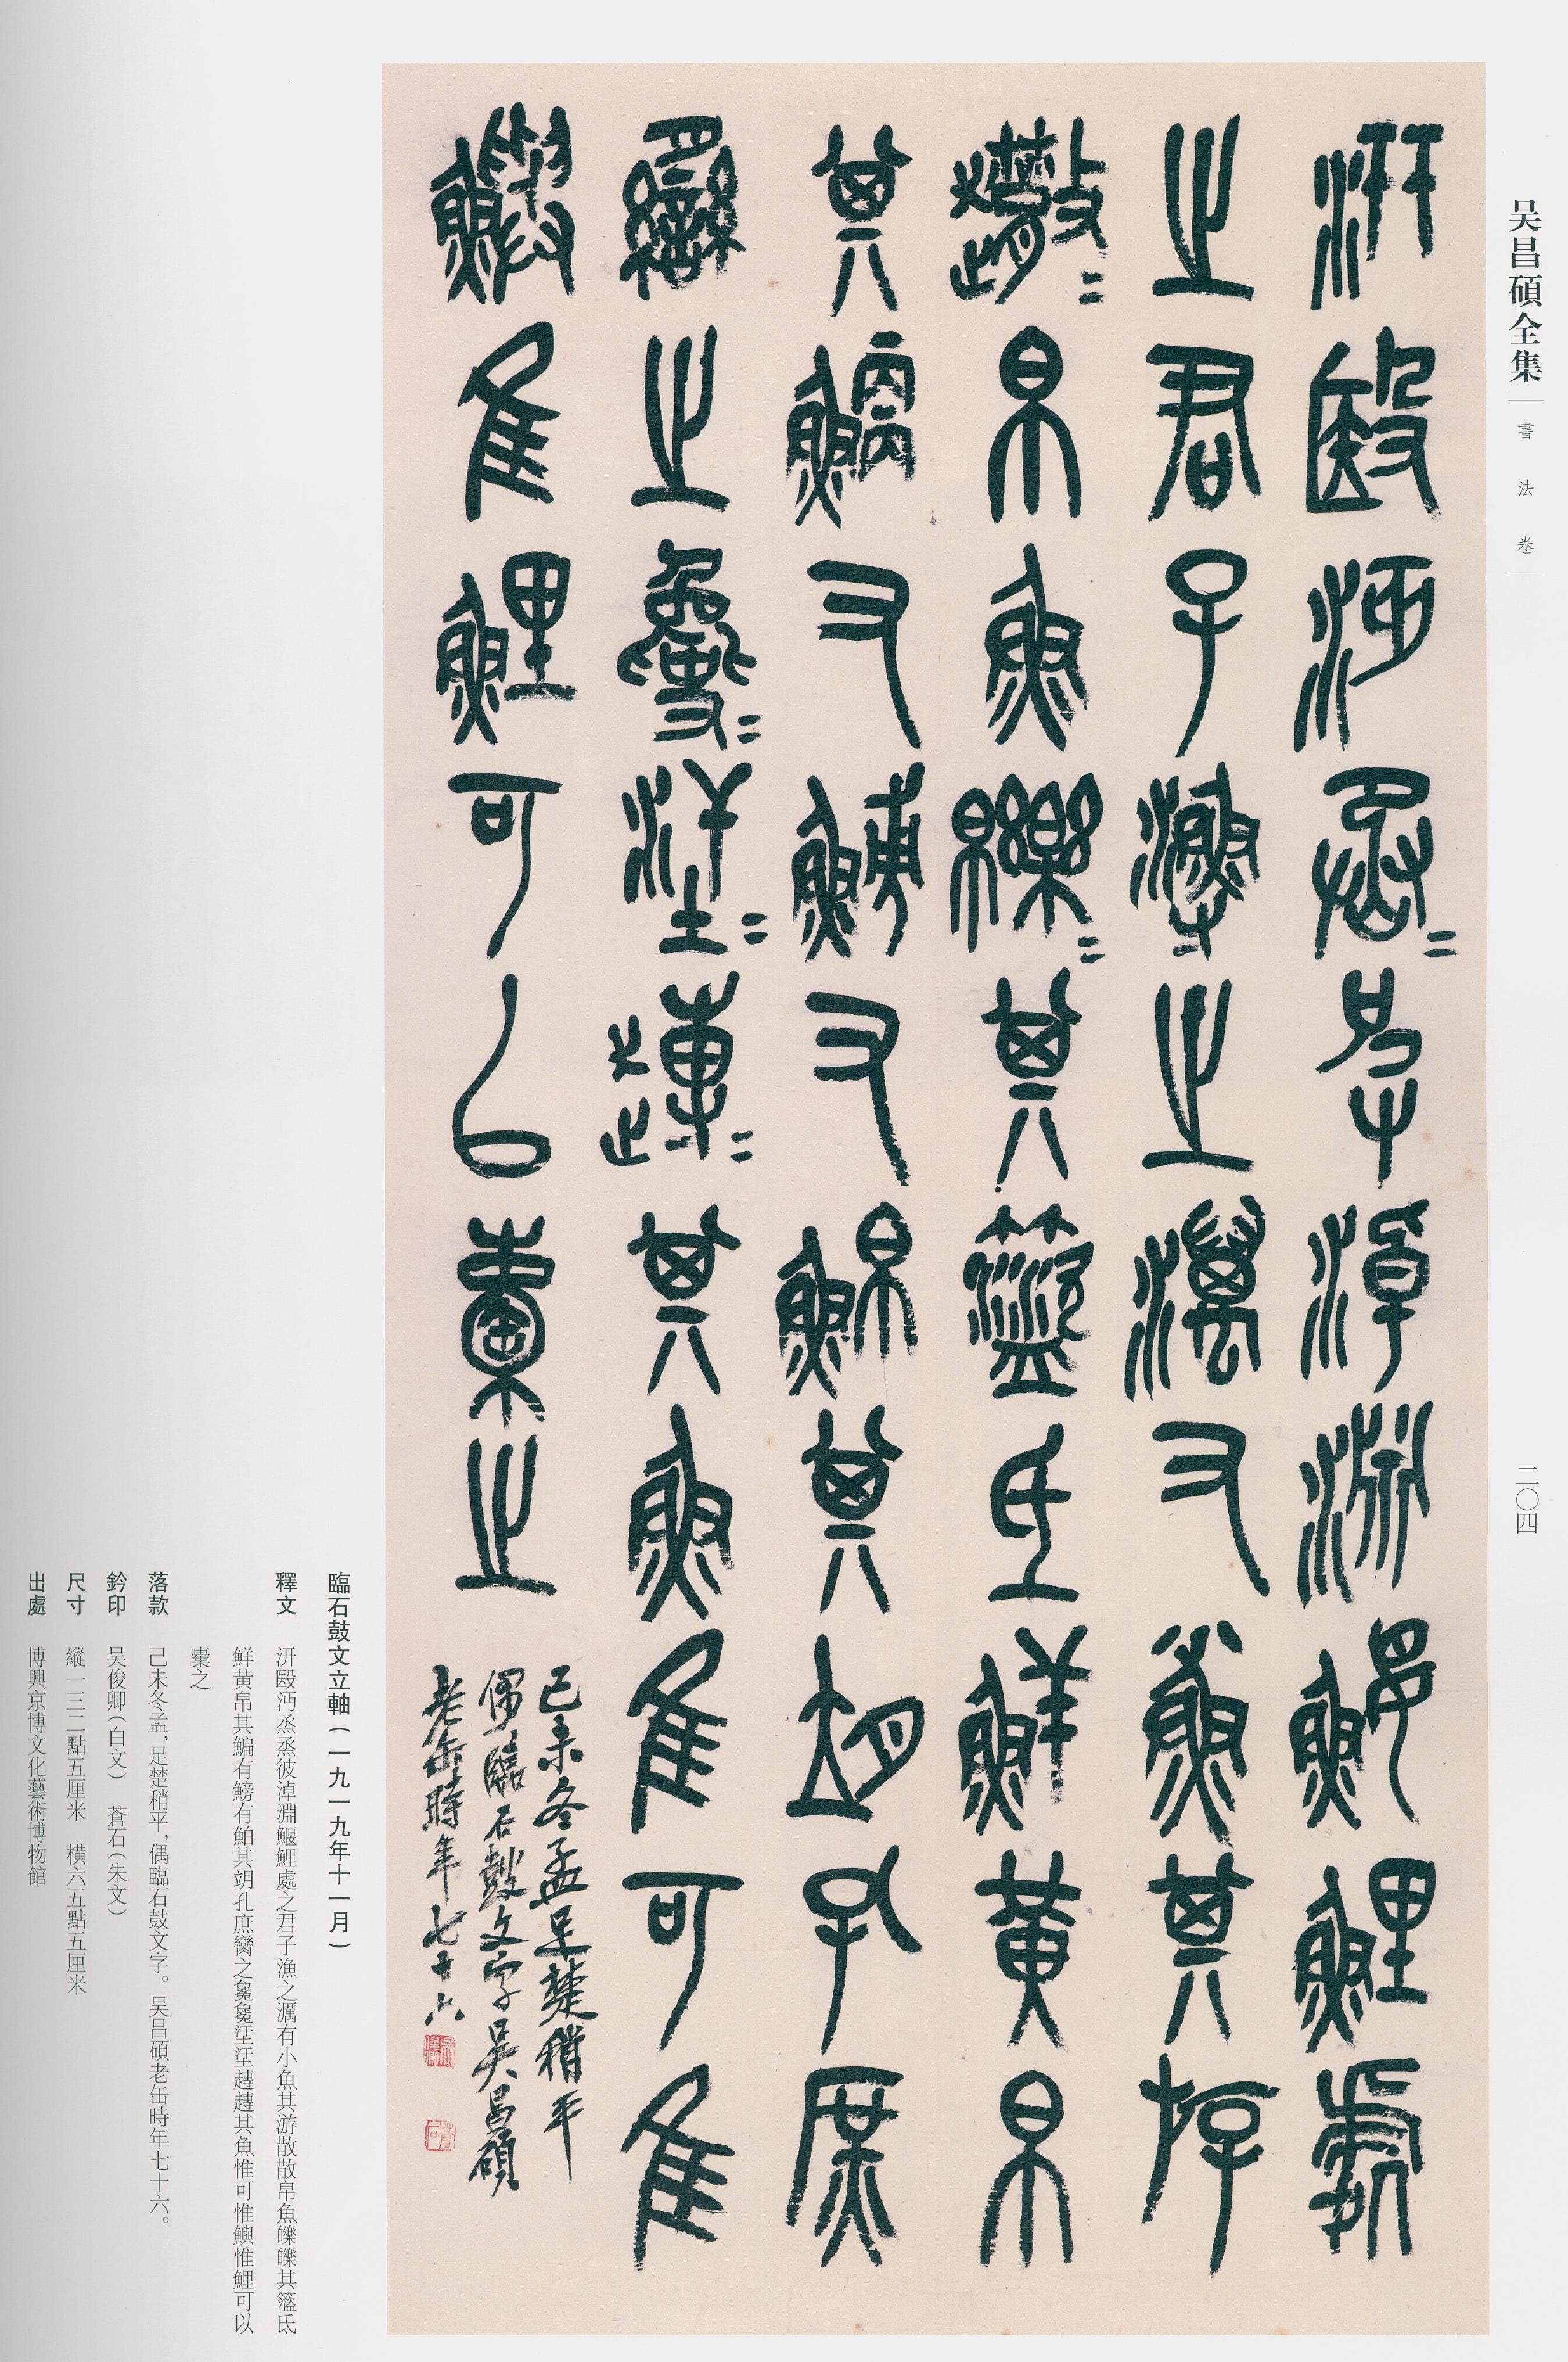 吴昌碩全集
書法卷
二〇四
汧殹沔丞=皮淖淵鰋鯉處
之君子漁之澫又小魚其斿
帛魚皪=其盜氐鮮黃帛
其鯿又鰟又鮊其孔庶
臠之㲋=汓=趚=其魚隹可隹
鱮隹鯉可以橐之
己未冬孟足楚稍平
偶臨石鼓文字吴昌碩
老缶時年七十六
臨石鼓文立軸（一九一九年十一月）
釋文 汧殹沔烝烝彼淖淵鰋鯉處之君子漁之澫有小魚其游散散帛魚皪皪其盜氐
鮮黃帛其鯿有鰟有鮊其孔庶臠之㲋㲋汓汓趚趚其魚惟可惟鱮惟鯉可以
橐之
落款 己未冬孟，足楚稍平，偶臨石鼓文字。吴昌碩老缶時年七十六。
鈐印 吴俊卿（白文） 蒼石（朱文）
尺寸 縱一三二點五厘米 橫六五點五厘米
出處 博興京博文化藝術博物館